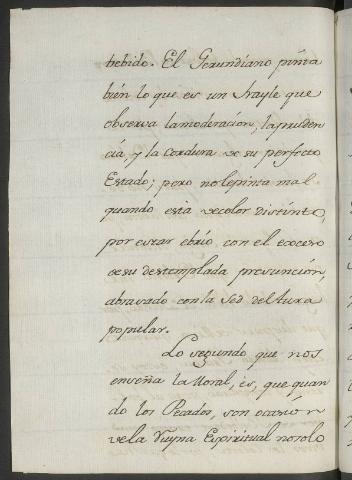 bebido. El Gerundiano pinta
bién lo que es un Frayle que
observa la moderacion, la pruden
cia, y la Cordura de su perfecto
Estado; pero no le pinta mal
quando esta de color distinto,
por estar ebrio, con el exceso
de su destemplada presunción,
abrasado con la sed del Aura
popular.
Lo segundo que nos
enseña la Moral, es, que quan
do los Pecados, son ocasion
de la Ruyna Espiritual no solo